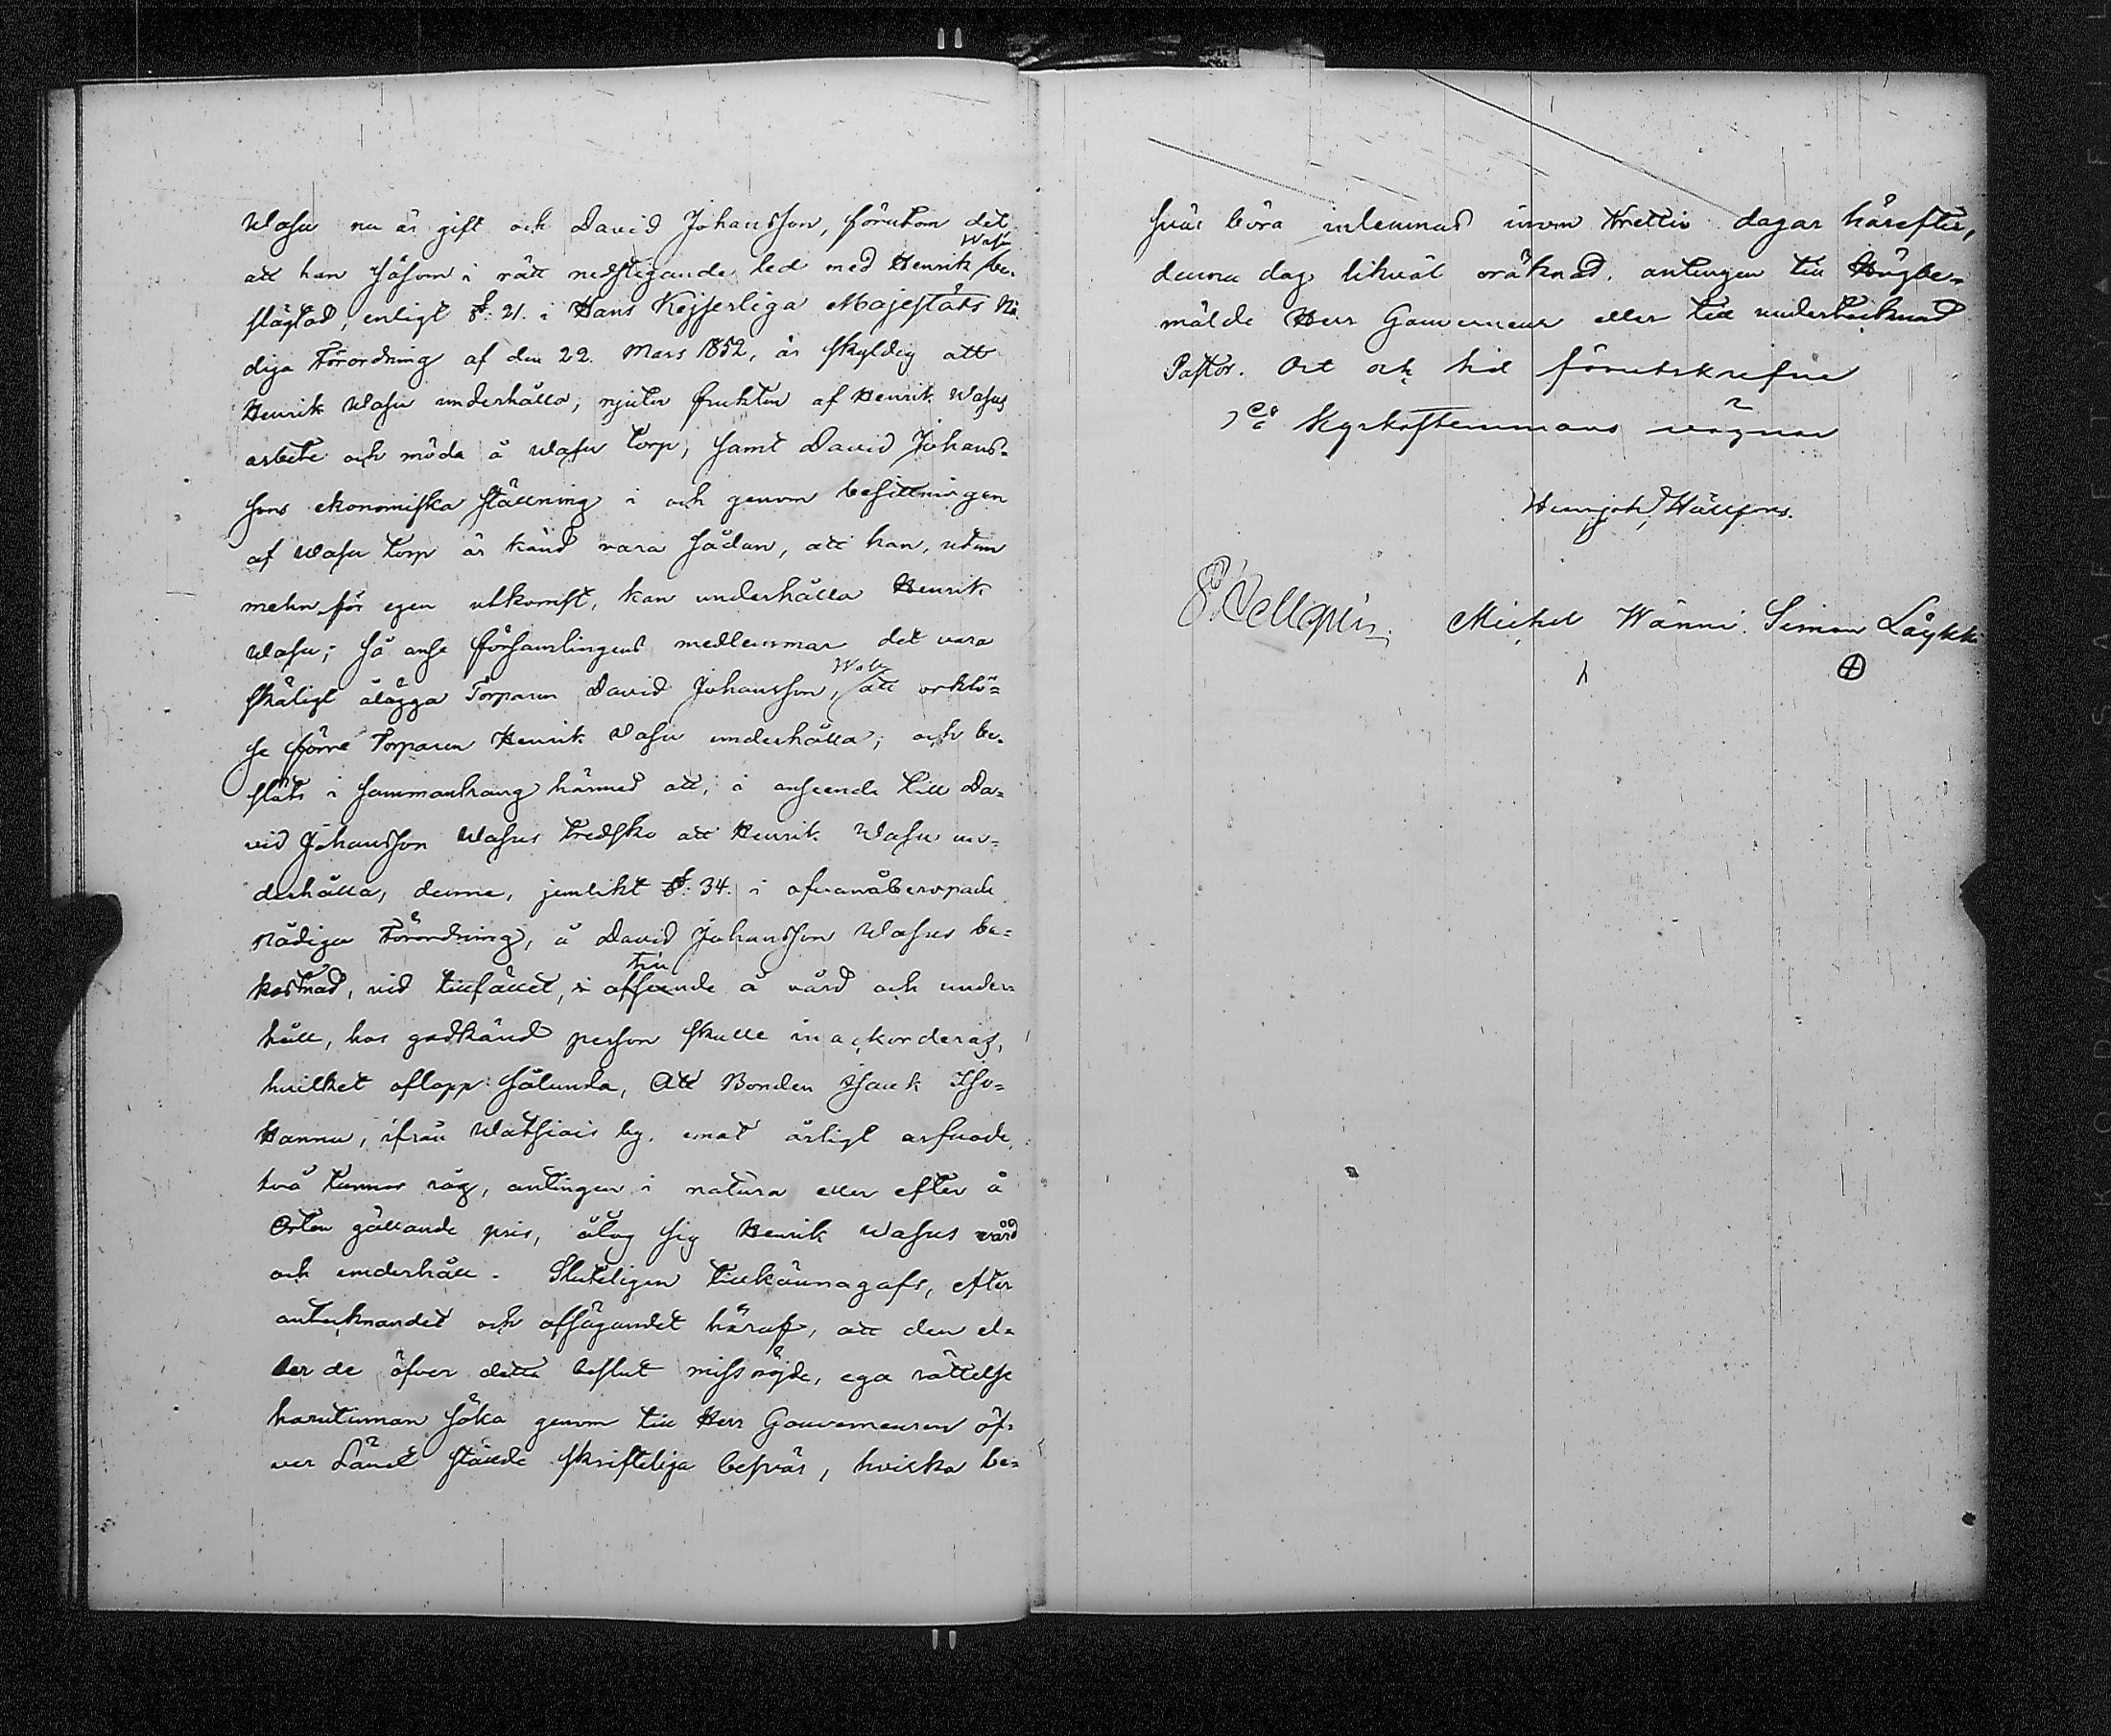 Wasu nu är gift och David Johansson, förutom det
att han såsom i rätt nedstigande led med Henrik Wasu be-
slägtad, enligt §. 21. i Hans Kejserliga Majestäts Nå-
diga Förordning af den 22. Mars 1852, är skyldig att
Henrik Wasu underhålla, njuter frukten af Henrik Wasus
arbete och möda å Wasu torp, samt David Johans-
sons ekonomiska ställning i och genom besittningen
af Wasu torp är känd vara sådan, att han, utan
mehn för egen utkomst, kan underhålla Henrik
Wasu; så anse församlingens medlemmar det vara
skäligt ålägga Torparen David Johansson Wasu, att orklö-
se förre Torparen Henrik Wasu underhålla; och be-
slöts i sammanhang härmed att, i anseende till Da-
vid Johansson Wasus tredsko att Henrik Wasu un-
derhålla, denne, jemlikt §. 34. i ofvanåberopade
Nådiga Förordning, å David Johansson Wasus be-
kostnad, vid tillfället, till afseende å vård och under-
håll, hos godkänd person skulle inackorderas,
hvilket aflopp sålunda, att Bonden Isaak Iso-
Hannu, ifrån by, emot årligt arfvode
två tunnor råg, antingen i natura eller efter å
Orten gällande pris, åtog sig Henrik Wasus vård
och underhåll. Sluteligen tillkännagafs, efter
antecknandet och afsägandet häraf, att den el-
ler de öfver detta beslut missnöjde, ega rättelse
harutinnan söka genom till Herr Gouverneuren öf-
ver Länet stälde skrifteliga besvär, hvilka be-
svär böra inlemnas inom trettio dagar härefter,
denna dag likväl oräknad, antingen till Högbe-
mälde Herr Gouverneur eller till undertecknad
Pastor. Ort och tid förutskrefne
Kyrkostemmans vägnar
Michel Wänni. Simon